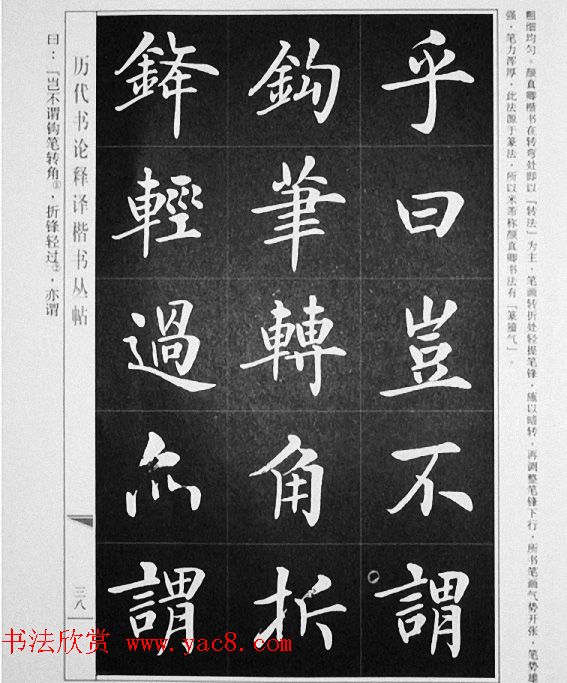 粗细均匀。颜真卿楷书在转弯处即以「转法」为主，笔画转折处轻提笔锋，施以暗转，再调整笔锋下行，所书笔画气势开张、笔势雄
强，笔力浑厚，此法源于篆法，所以米芾称颜真卿书法有「篆籀气」。
乎曰豈不謂
鈎筆轉角折
鋒輕過亦謂
历代书论释译楷书丛帖
三八
曰：「岂不谓钩笔转角①，折锋轻过②，亦谓
书法欣赏 www.yac8.com